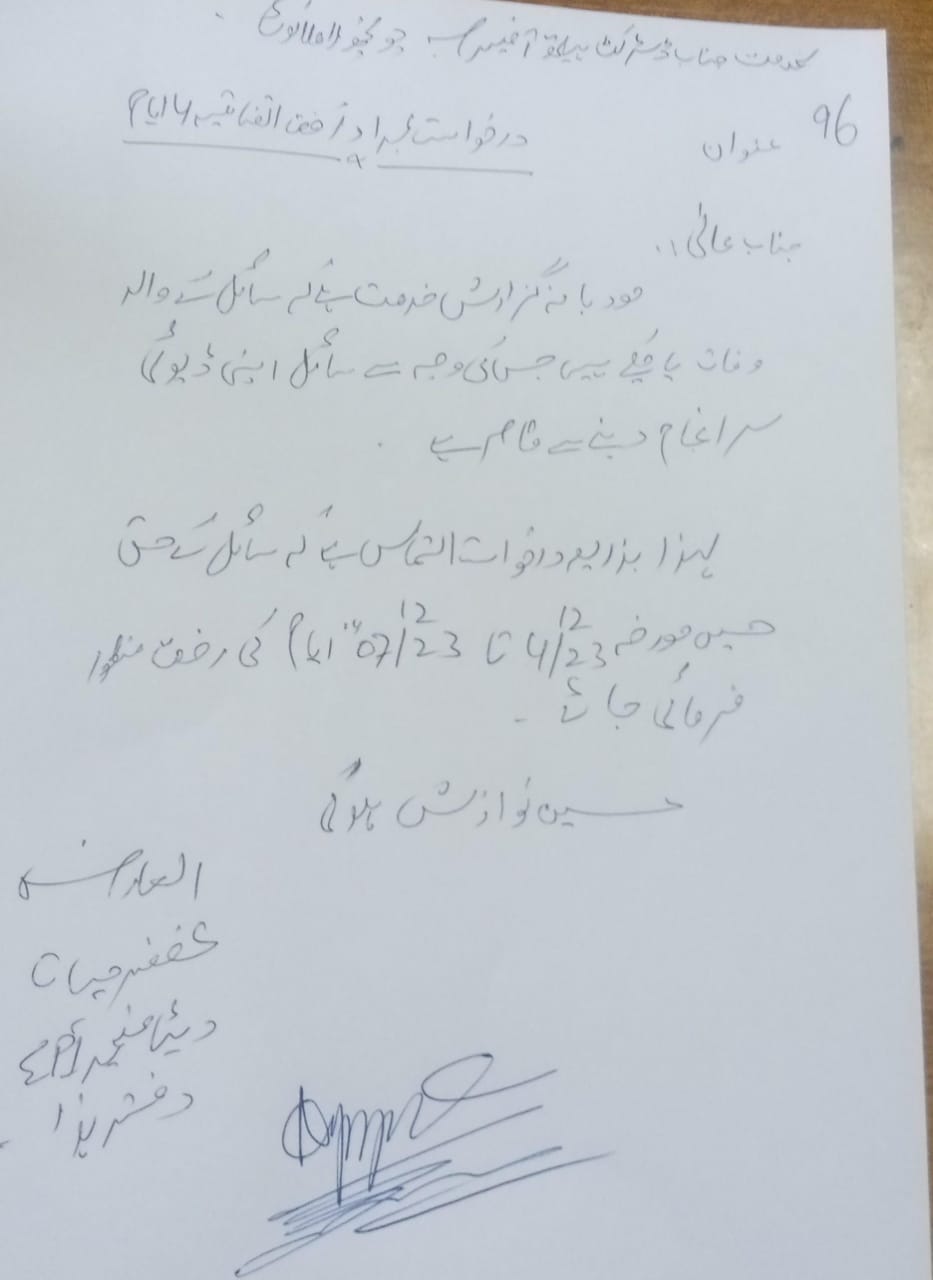 بخدمت جناب ڈسٹرکٹ ہیلتھ آفیسر صاحب
96
عنوان درخواست بمراد رخصت اتفاقیہ 4 ایام
جناب عالی!
مودبانہ گزارش خدمت ہے کہ سائل کے والد
وفات پا چکے ہیں جس کی وجہ سے سائل اپنی ڈیوٹی
سر انجام دینے سے قاصر ہے
لہذا بذریعہ درخواست التماس ہے کہ سائل کے حق
میں مورخہ 4/12/23 تا 07/12/23 "4" ایام کی رخصت منظور
فرمائی جائے ۔
عین نوازش ہوگی
العارض
غضنفر حیات
دفتر ہذا